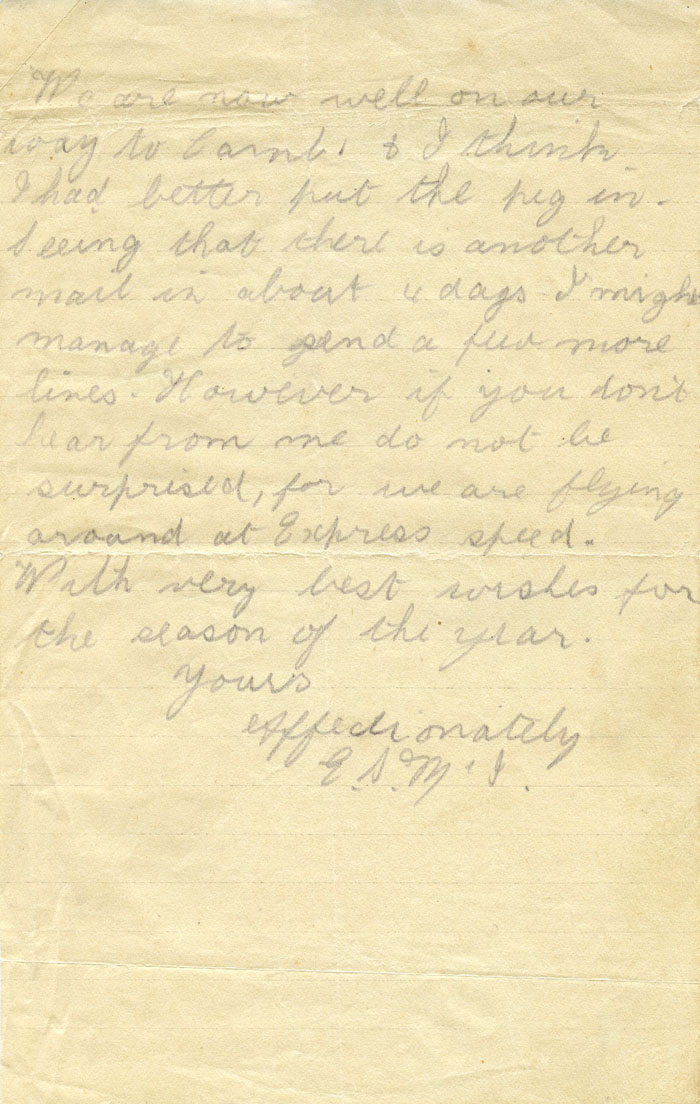 We are now well on our
way to Camb. & I think
I had better put the peg in.
Seeing that there is another
mail in about 4 days I might
manage to send a few more
lines. However if you don't
hear from me do not be
surprised, for we are flying
around at Express speed.
With very best wishes for
the season of the year.
Yours
Affectionately
E.S.McI.